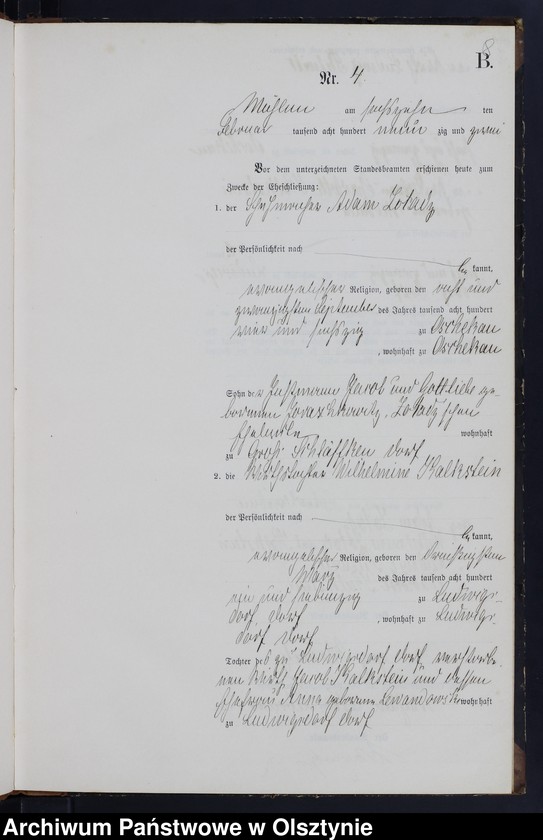 8
B.
Nr. 4
Mühlen am sechszehn ten
Februar tausend acht hundert neun zig und zwei
Vor dem unterzeichneten Standesbeamten erschienen heute zum
Zwecke der Eheschließung:
1. der Schuhmacher Adam Lokadz
der Persönlichkeit nach
be kannt,
evangelischer Religion, geboren den acht und
zwanzigsten September des Jahres tausend acht hundert
vier und sechszig zu Oschekau
, wohnhaft zu Oschekau
Sohn der Instmann Jacob und Gottliebe ge-
bornen Lokadz'schen
Eheleute wohnhaft
zu Groß Schläffken Dorf
2. die Wirthstochter Wilhelmine Kalkstein
der Persönlichkeit nach
be kannt,
evangelischer Religion, geboren den Dreißigsten
März des Jahres tausend acht hundert
ein und siebenzig zu Ludwigs-
dorf Dorf , wohnhaft zu Ludwigs-
dorf Dorf
Tochter des zu Ludwigsdorf Dorf verstorbe-
nen Wirths Jacob Kalkstein und dessen
Ehefrau Anna geborene Lewandowski wohnhaft
zu Ludwigsdorf Dorf
Archiwum Państwowe w Olsztynie